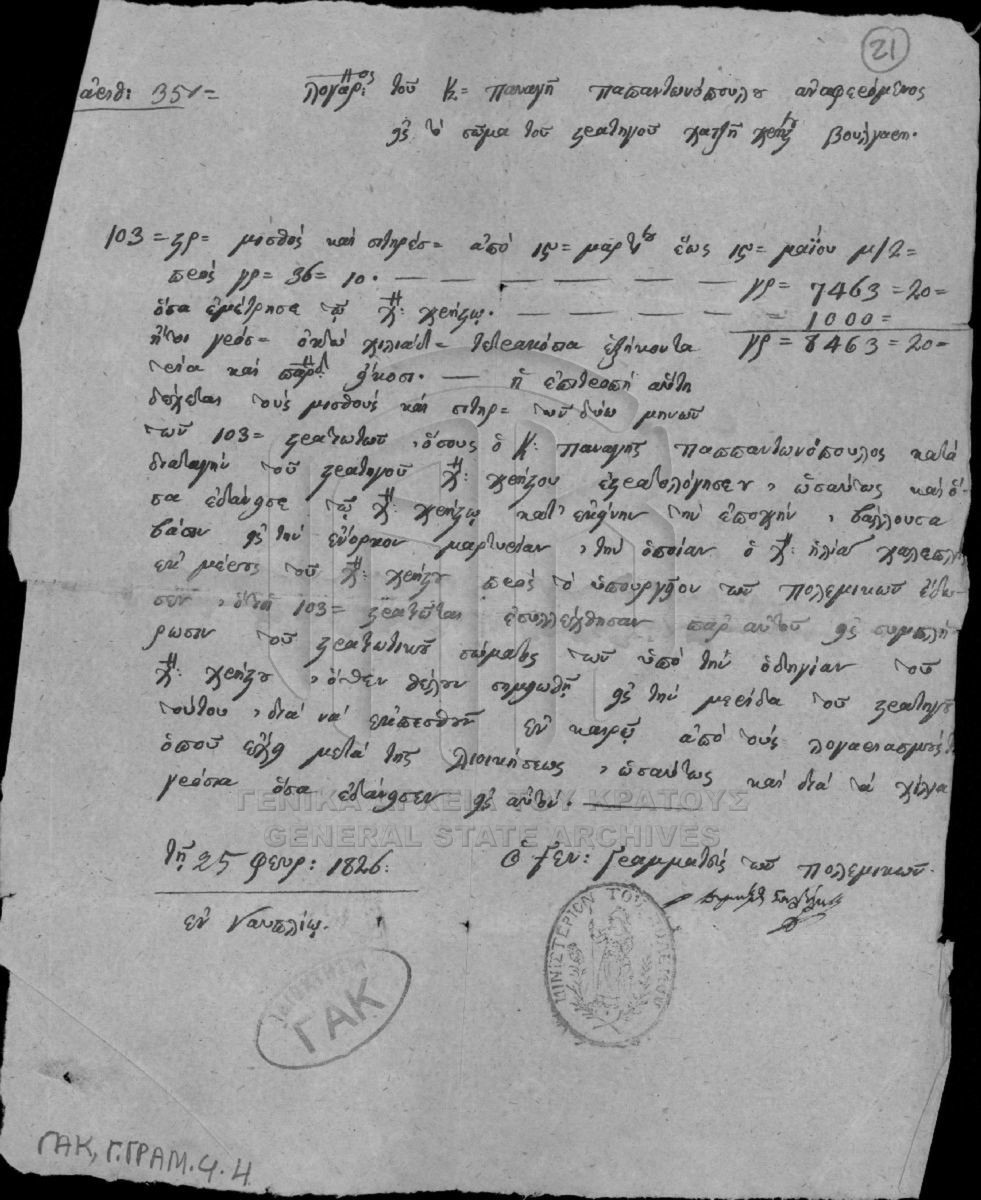 21
ἀριθ: 35
λογαρ: τοῦ Κ= παναγῆ παπαντωνόπουλου ἀναφερόμενος
εἰς τὸ σῶμα τοῦ στρατηγοῦ χατζῆ χρήστου βούλγαρη.
103 = στρ= μισθὸς καὶ σιτηρέσ= ἀπὸ 15 = μαρτίου ἕως 15 = μαΐου μ/2 =
πρὸς γρ= 36 = 10. — γρ= 7463 = 20 =
ὅσα ἐμέτρησε τῷ χ: χρήστῳ. — 1000 =
ἤτοι γρόσ= ὀκτὼ χιλιάδ= τετρακόσια ἑξήκοντα γρ= 8463 = 20 =
τρία καὶ παρδ. εἴκοσι. — ἡ ἐπιτροπὴ αὕτη
δέχεται τοὺς μισθοὺς καὶ σιτηρ= τῶν δύω μηνῶν
τῶν 103 = στρατιωτῶν, ὅσους ὁ Κ: παναγῆς παππαντωνόπουλος κατὰ
διαταγὴν τοῦ στρατηγοῦ χ: χρήστου ἐστρατολόγησεν, ὡσαύτως καὶ ὅ-
σα ἐδάνησε τῷ χ: χρήστῳ κατ' ἐκείνην τὴν ἐποχήν, βάλλουσα
βάσιν εἰς τὴν ἔνορκον μαρτυρίαν, τὴν ὁποίαν ὁ χ: ἠλία
ἐκ μέρους τοῦ χ: χρήστου πρὸς τὸ ὑπουργεῖον τῶν πολεμικῶν ἔδω-
σεν, ὅτι οἱ 103 = στρατιῶται ἐσυλλέχθησαν παρ' αὐτοῦ εἰς συμπλή-
ρωσιν τοῦ στρατιωτικοῦ σώματος τῶν ὑπὸ τὴν ὁδηγίαν τοῦ
χ: χρήστου, ὅθεν θέλουν σημειωθῆ εἰς τὴν μερίδα τοῦ στρατηγοῦ
τούτου, διὰ νὰ ἐκπεσθοῦν ἐν καιρῷ ἀπὸ τοὺς λογαριασμοὺς
ὁποῦ ἔχει μετὰ τῆς διοικήσεως, ὡσαύτως καὶ διὰ τὰ χίλια
γρόσια ὅσα ἐδάνησεν εἰς αὐτόν. —
ΓΕΝΙΚΑ ΑΡΧΕΙΑ ΤΟΥ ΚΡΑΤΟΥΣ
GENERAL STATE ARCHIVES
τῇ 25 φευρ: 1826. ὁ Γεν: Γραμματεὺς τῶν πολεμικῶν.
ἐν Ναυπλίῳ.
ΜΙΝΙΣΤΕΡΙΟΝ ΤΟΥ ΠΟΛΕΜΟΥ
ΓΑΚ
ΓΑΚ, Γ.ΓΡΑΜ. 4. 4